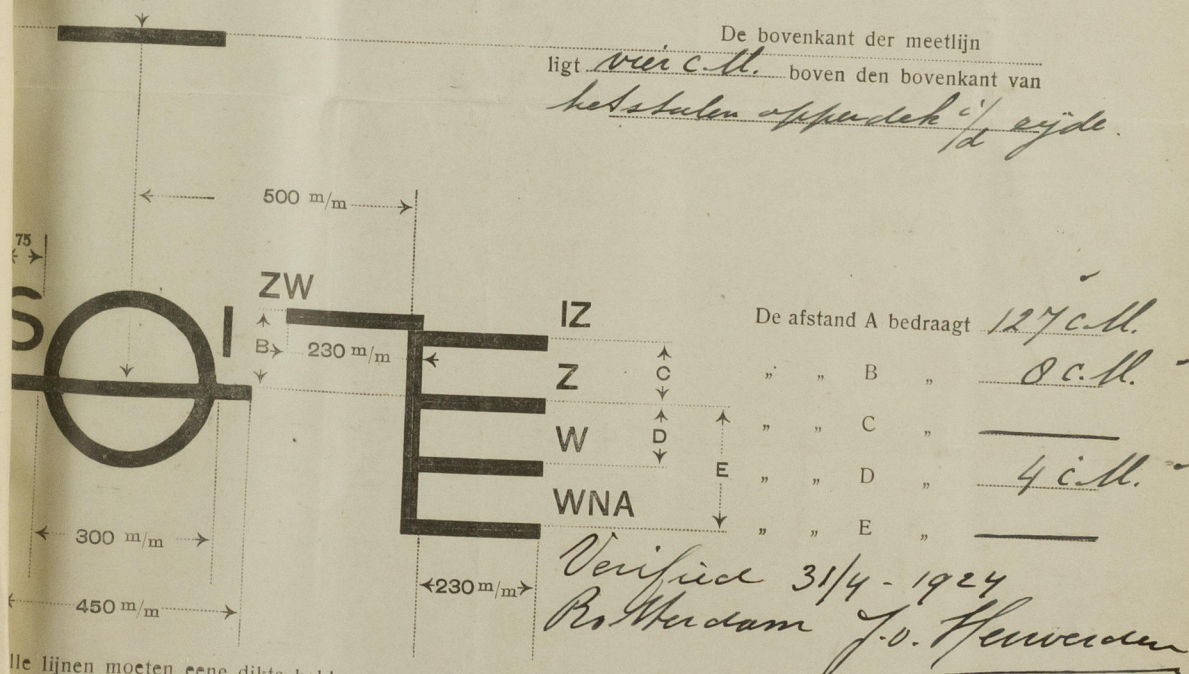 De bovenkant der meetlijn
ligt vier c.M. boven den bovenkant van
het stalen opperdek i/d zijde.
500 m/m
75
ZW
S
I
IZ
B
230 m/m
Z
C
W
D
E
WNA
De afstand A bedraagt 127 c.M.
„ „ B „ 8 c.M.
„ „ C „ ———
„ „ D „ 4 c.M.
„ „ E „ ———
300 m/m
230 m/m
450 m/m
Verified 31/4 - 1924
Rotterdam J. v. Herwerden
lle lijnen moeten eene dikte